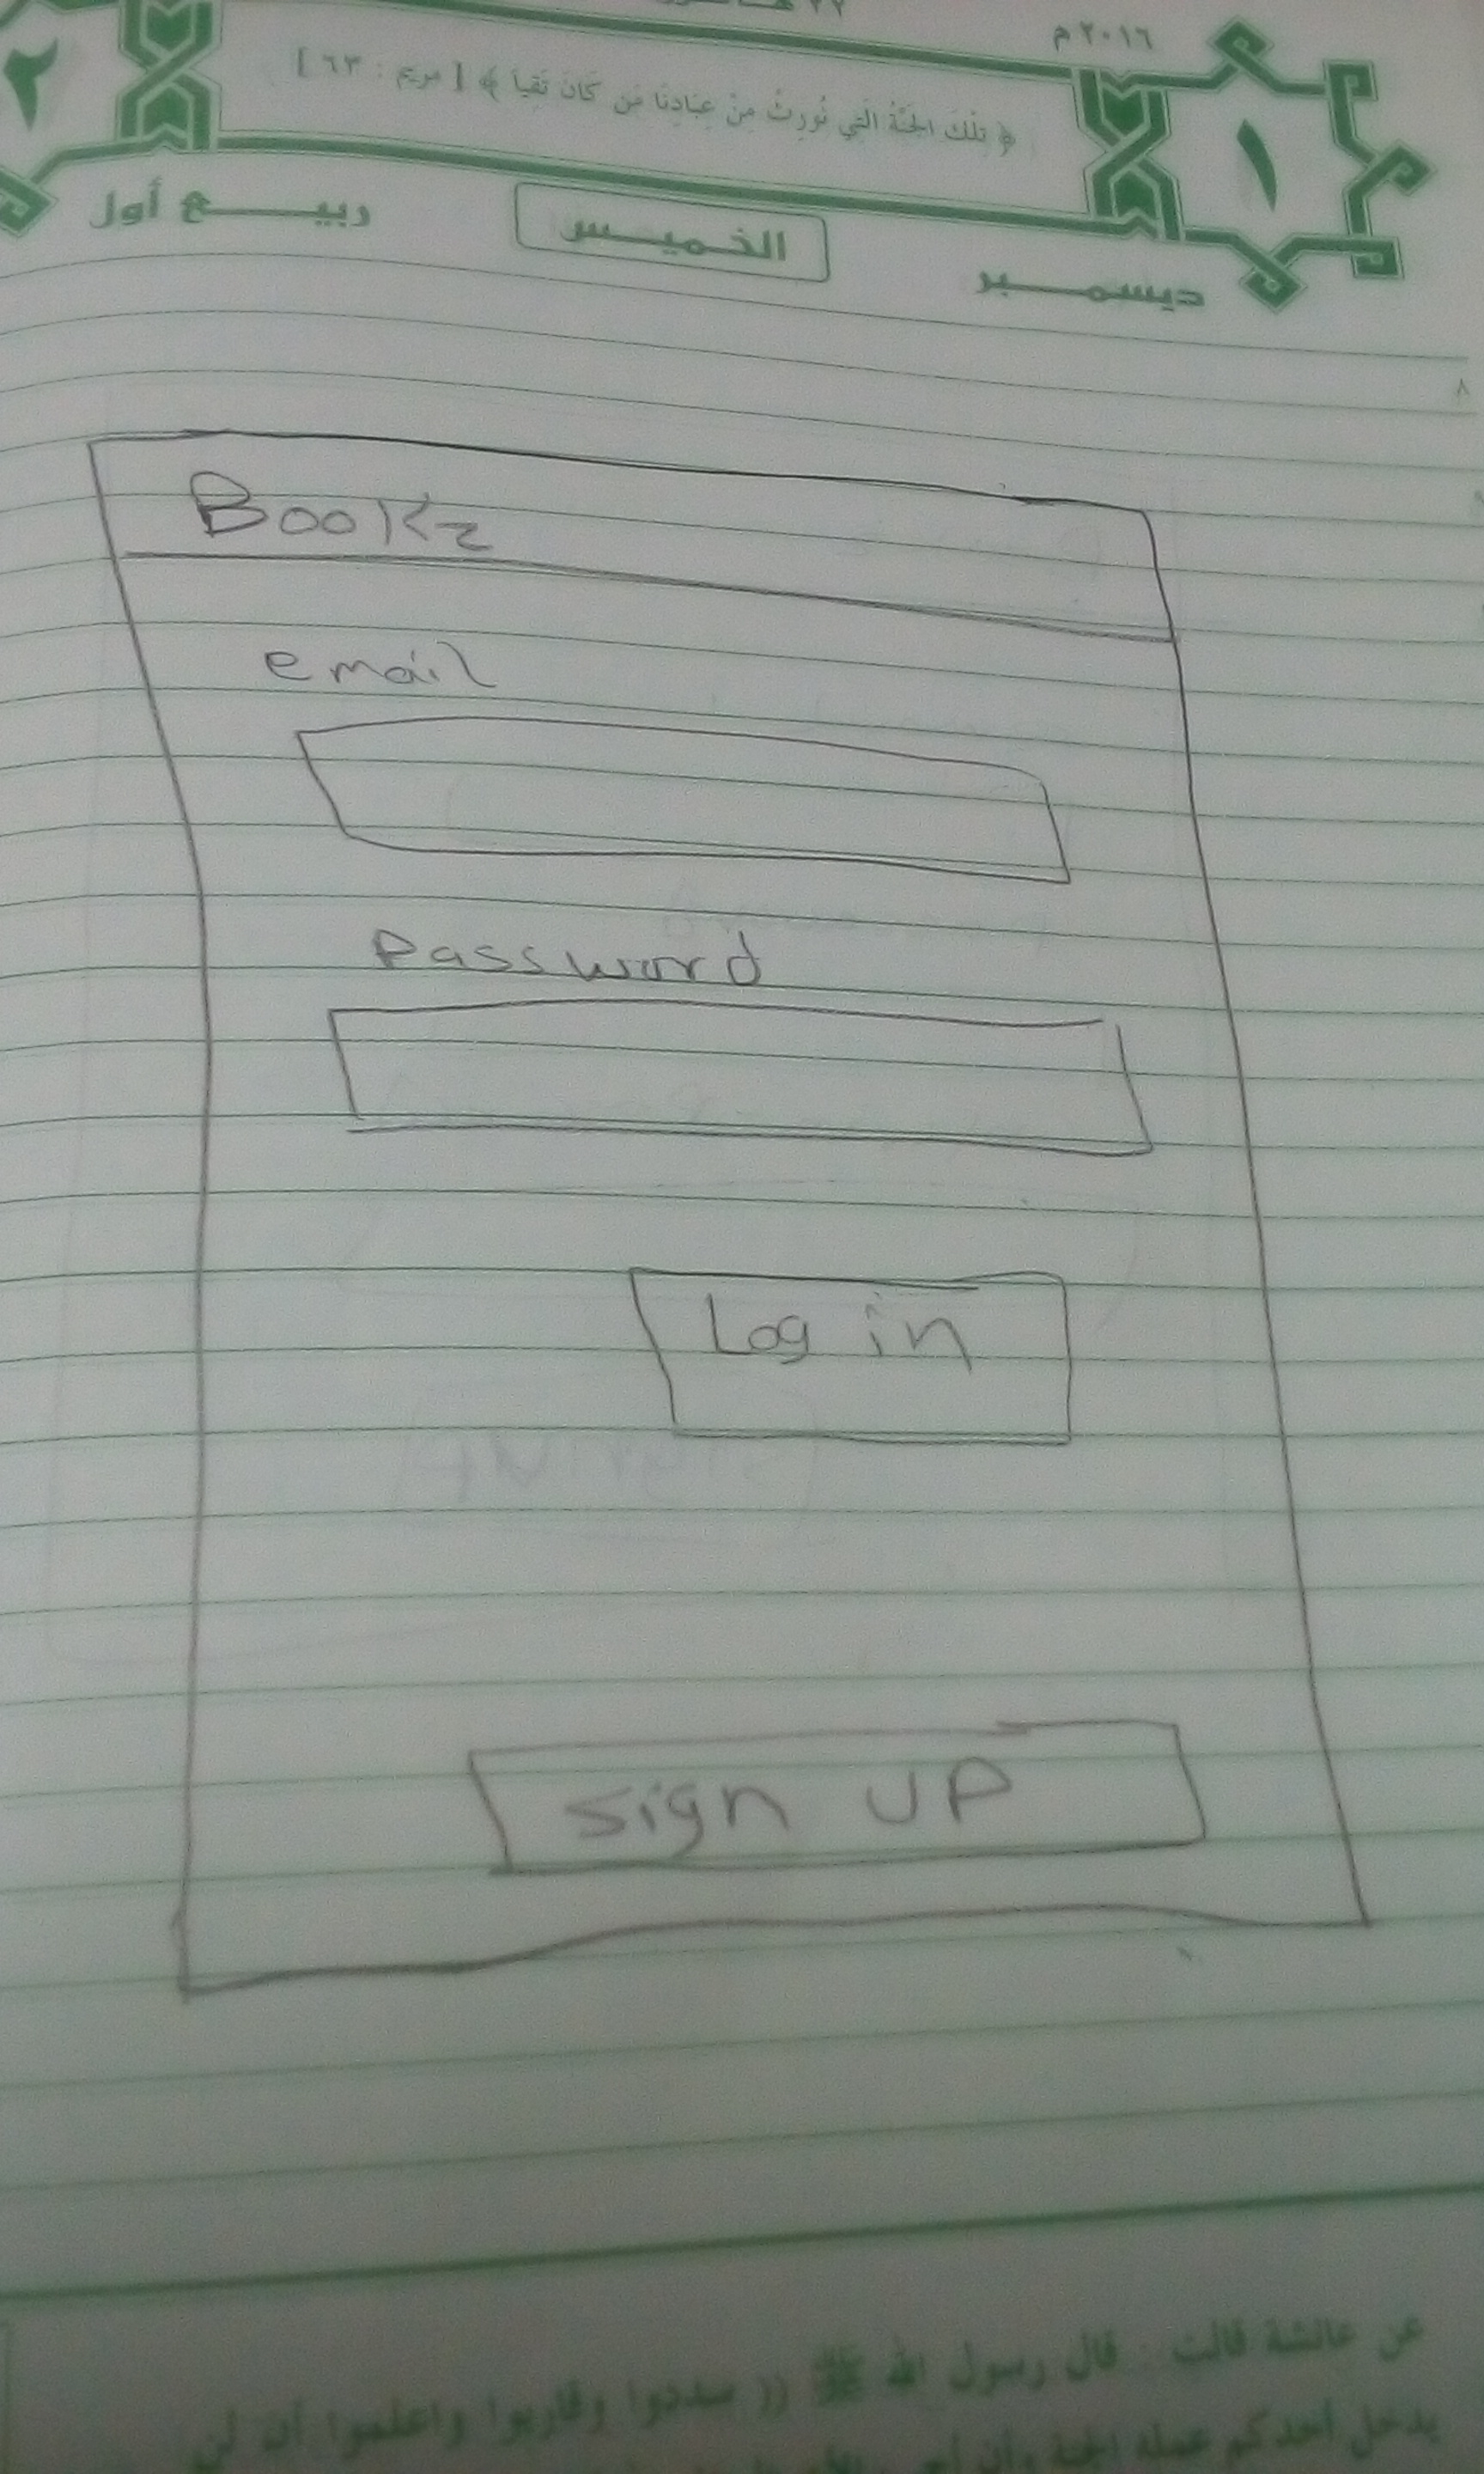 ٢٠١٦ م
١
﴿ تِلْكَ الجَنَّةُ الَّتِي نُورِثُ مِنْ عِبَادِنَا مَن كَانَ تَقِياً ﴾ [ مريم : ٦٣ ]
٢
ديسمبر
الخميس
ربيع أول
٨
BOOKz
email
Password
Log in
sign UP
عن عائشة قالت : قال رسول الله ﷺ (( سددوا وقاربوا واعلموا أن لن
يدخل أحدكم عمله الجنة وأن أحب